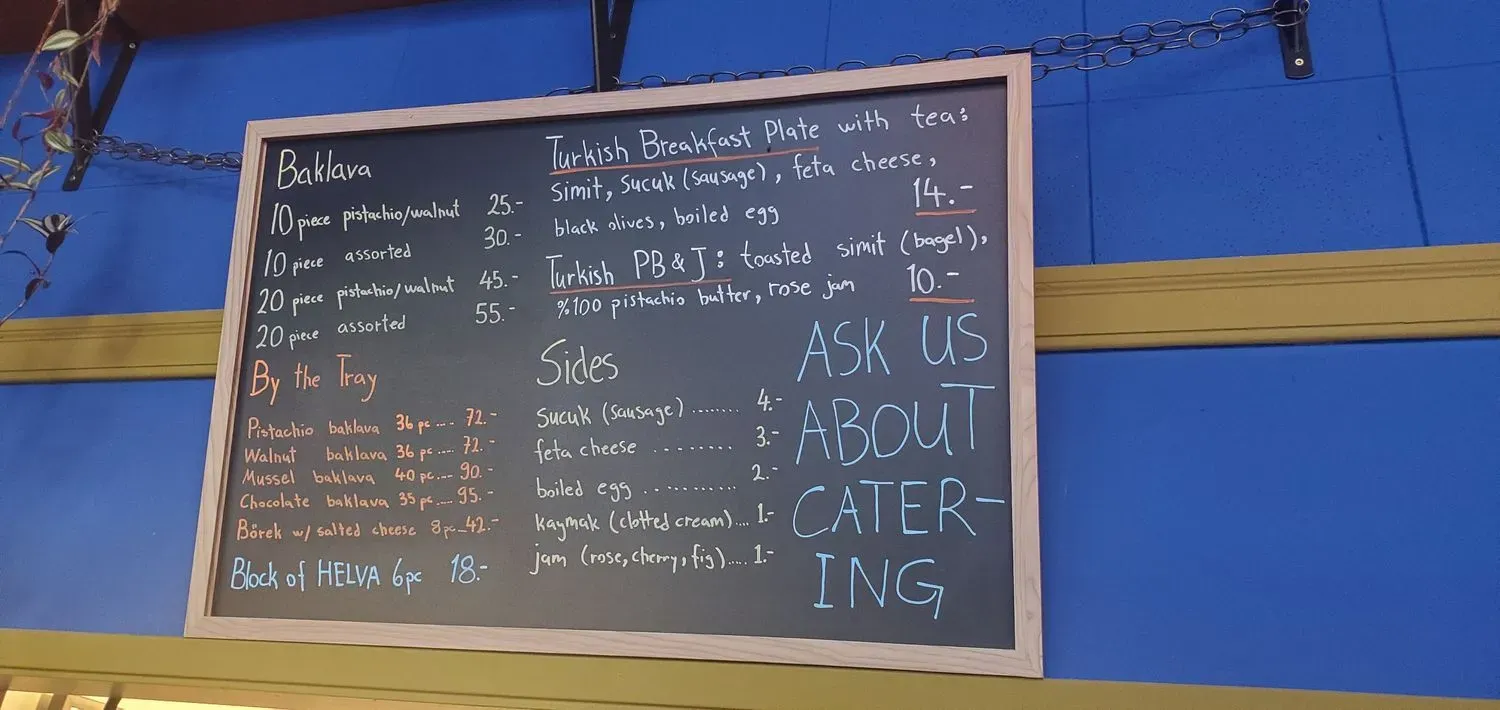 Baklava
10 piece pistachio/walnut 25.-
10 piece assorted 30.-
20 piece pistachio/walnut 45.-
20 piece assorted 55.-
By the Tray
Pistachio baklava 36 pc .... 72.-
Walnut baklava 36 pc .... 72.-
Mussel baklava 40 pc.... 90.-
Chocolate baklava 35 pc .... 95.-
Börek w/ salted cheese 8pc...42.-
Block of HELVA 6pc 18.-
Turkish Breakfast Plate with tea:
Simit, Sucuk (sausage), feta cheese,
black olives, boiled egg 14.-
Turkish PB & J: toasted simit (bagel),
%100 pistachio butter, rose jam 10.-
Sides
Sucuk (sausage) ........ 4.-
feta cheese ........ 3.-
boiled egg .......... 2.-
kaymak (clotted cream).... 1.-
jam (rose, cherry, fig)..... 1.-
ASK US
ABOUT
CATER-
ING